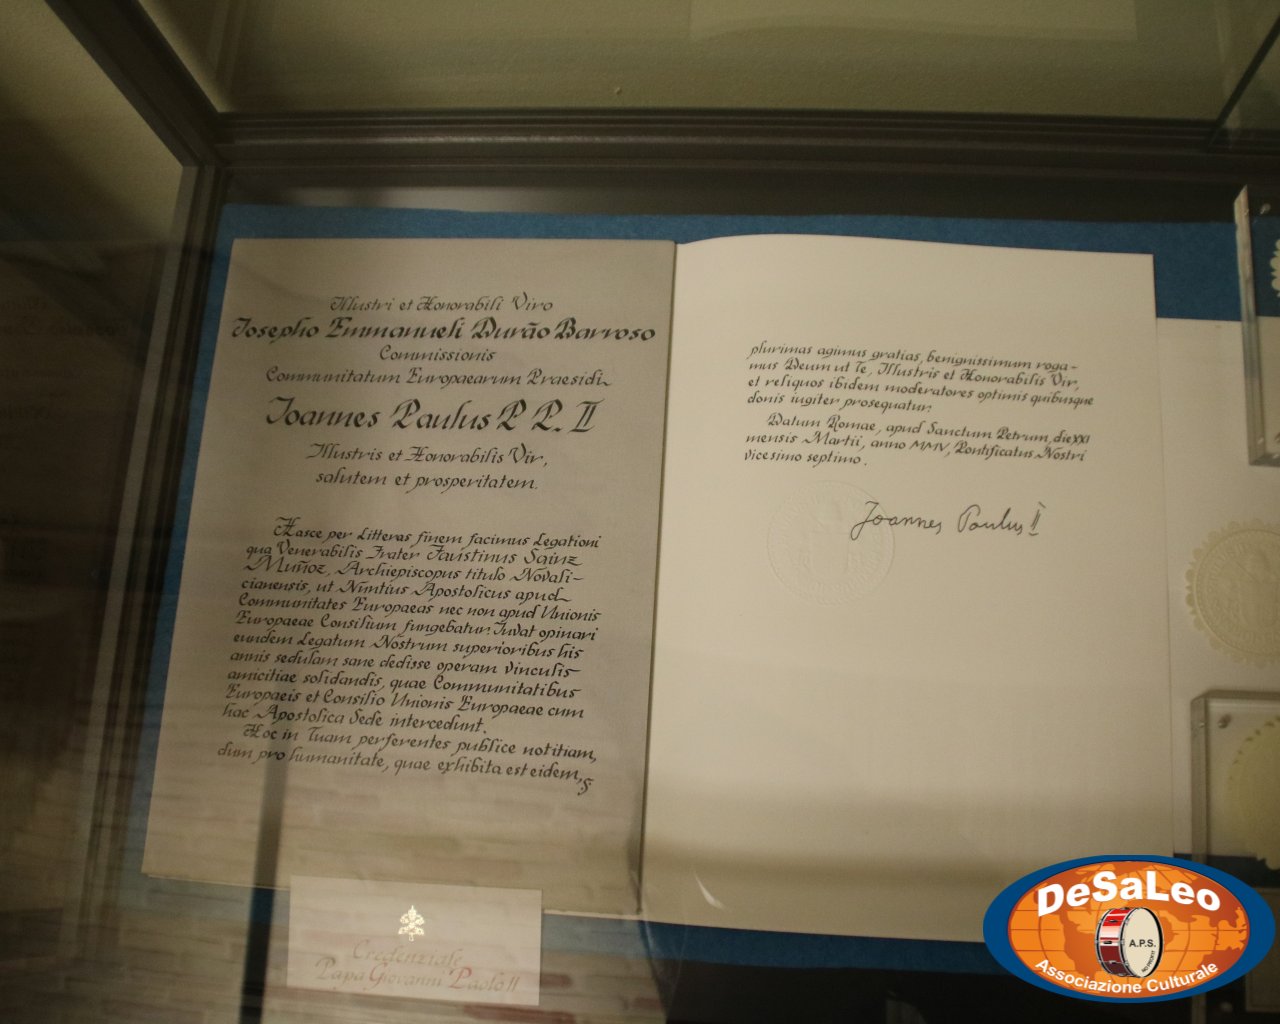 Illustri et Honorabili Viro
Josepho Emmanueli Durão Barroso
Commissionis
Communitatum Europaearum Praesidi
Ioannes Paulus P P. II
Illustris et Honorabilis Vir,
salutem et prosperitatem.
Hasce per Litteras finem facimus Legationi
qua Venerabilis Frater Faustinus Sainz
Muñoz, Archiepiscopus titulo Novali-
cianensis, ut Nuntius Apostolicus apud
Communitates Europaeas nec non apud Unionis
Europaeae Consilium fungebatur. Iuvat opinari
eundem Legatum Nostrum superioribus his
annis sedulam sane dedisse operam vinculis
amicitiae solidandis, quae Communitatibus
Europaeis et Consilio Unionis Europaeae cum
hac Apostolica Sede intercedunt.
Hoc in Tuam perferentes publice notitiam,
dum pro humanitate, quae exhibita est eidem,
plurimas agimus gratias, benignissimum roga-
mus Deum ut Te, Illustris et Honorabilis Vir,
et reliquos ibidem moderatores optimis quibusque
donis iugiter prosequatur.
Datum Romae, apud Sanctum Petrum, die XXI
mensis Martii, anno MMV, Pontificatus Nostri
vicesimo septimo.
Joannes Paulus II
Credenziale
Papa Giovanni Paolo II
DeSaLeo
A.P.S.
Associazione Culturale